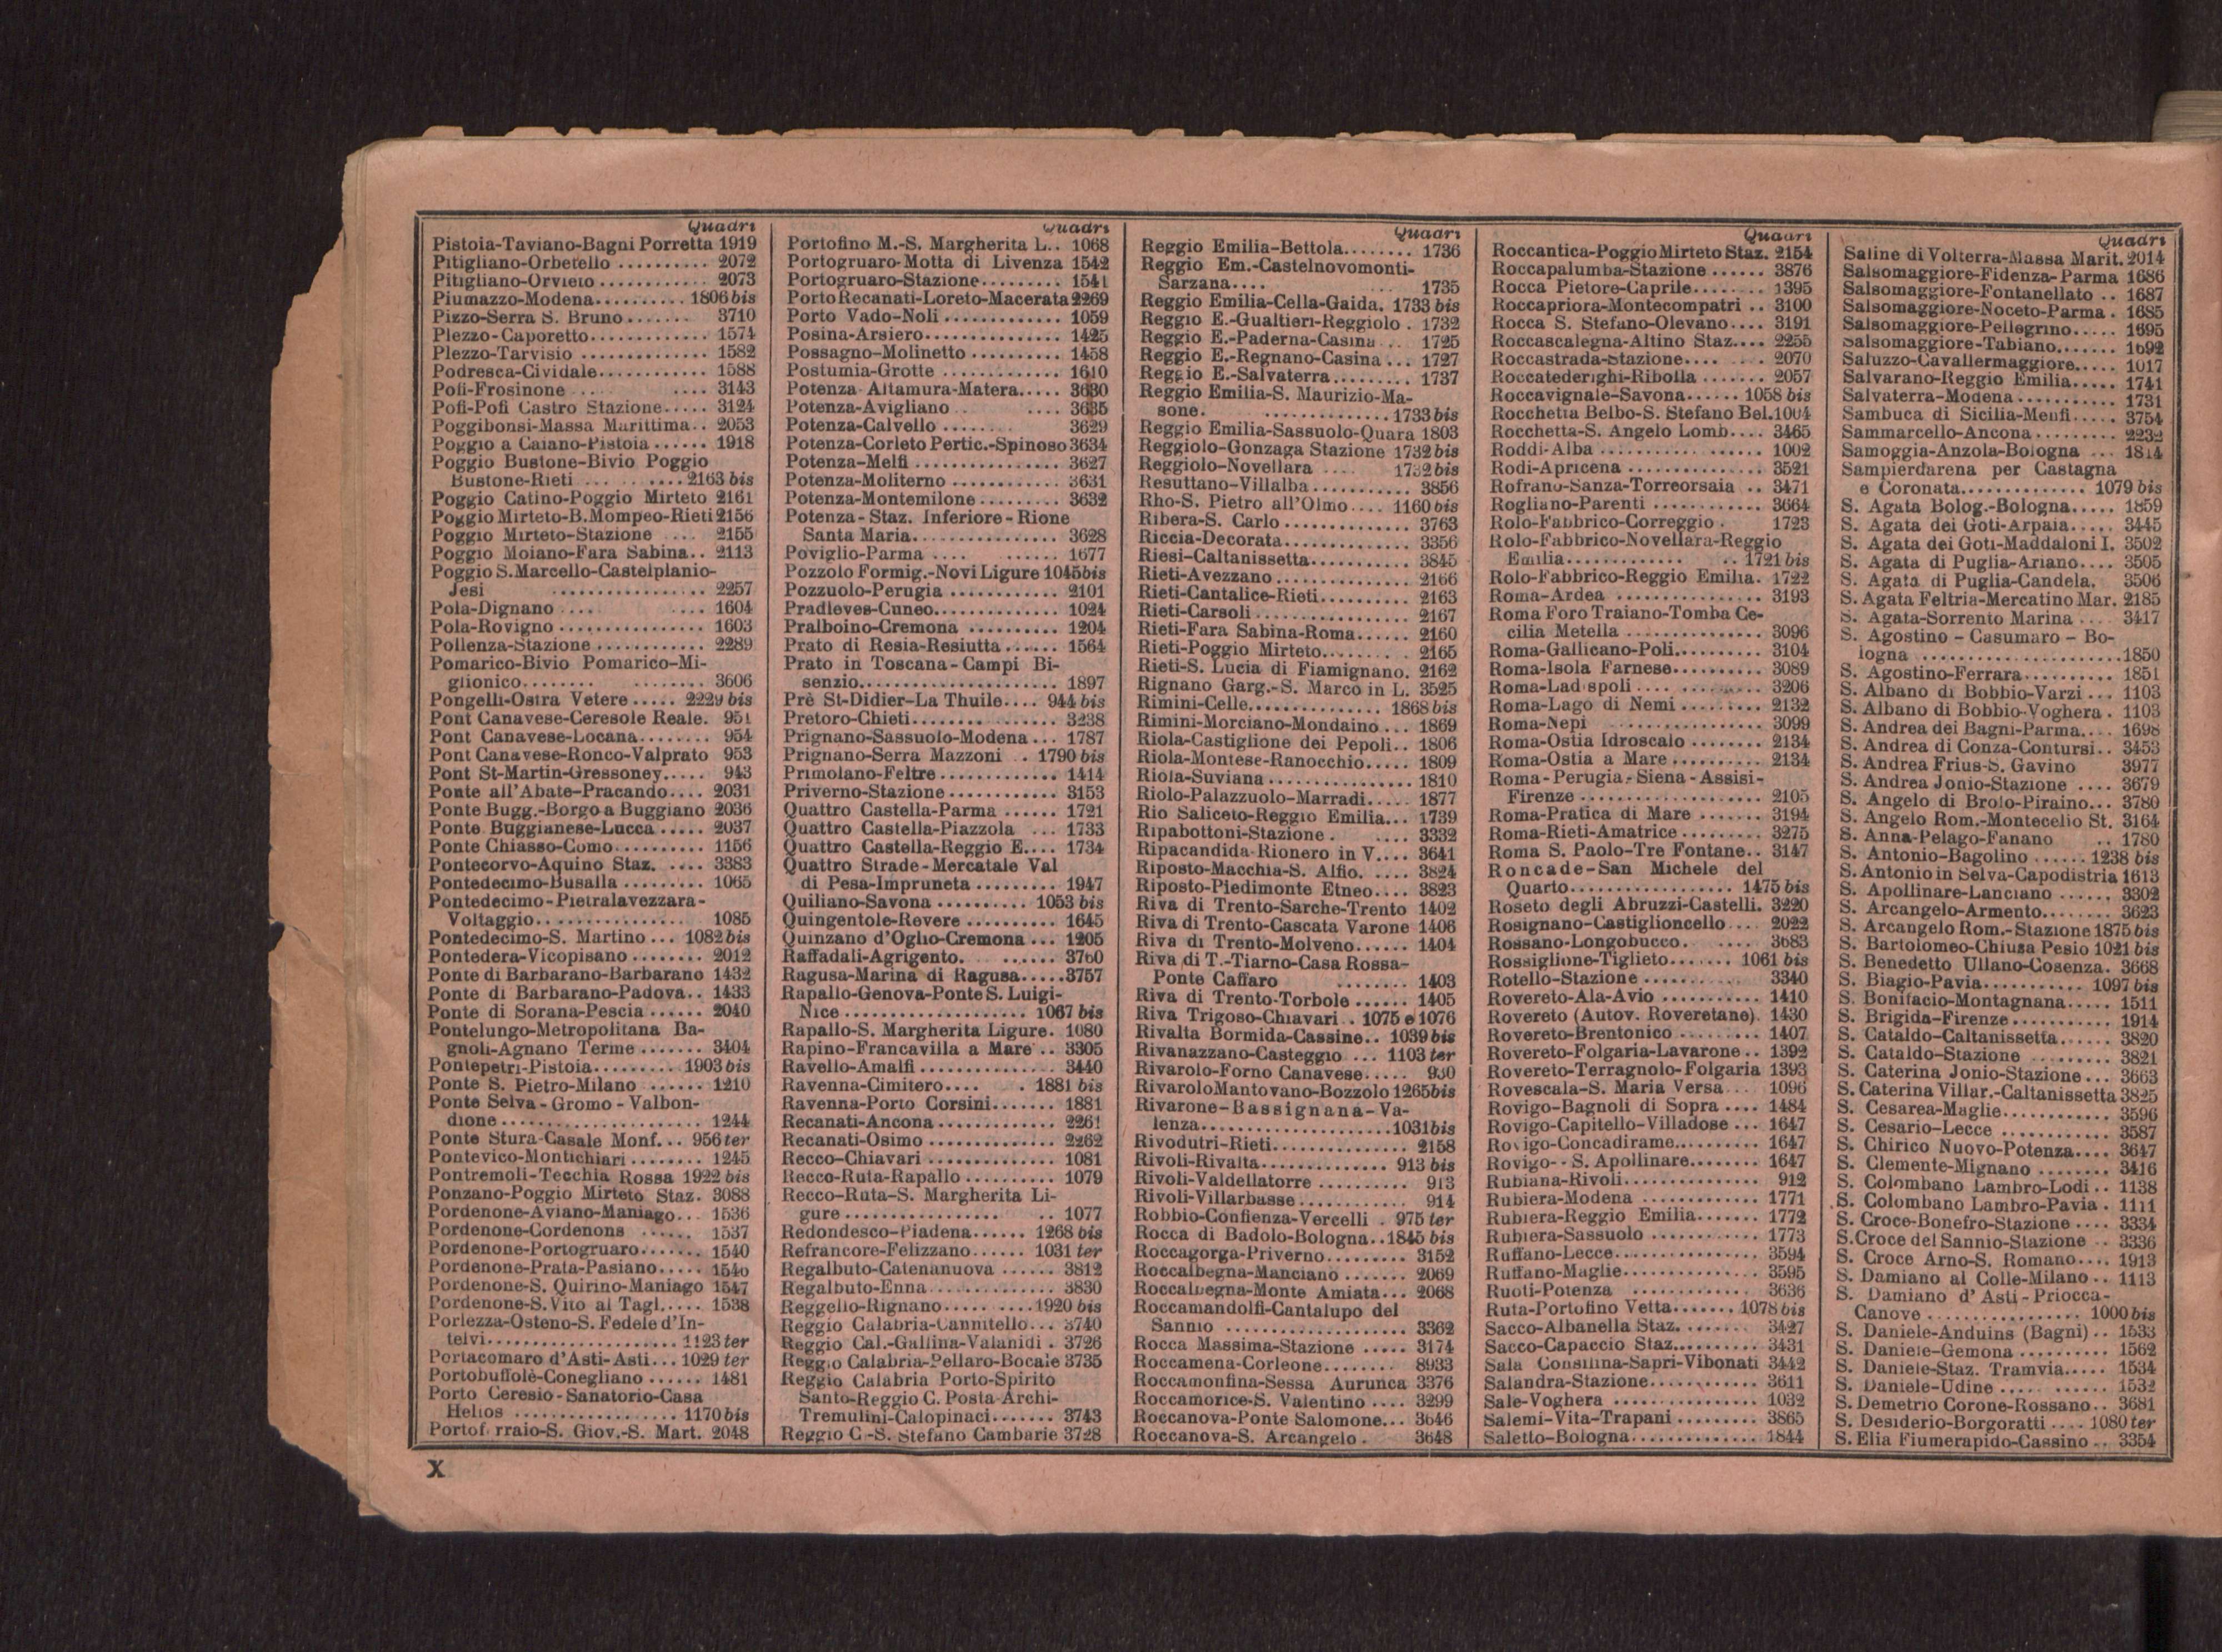 Quadri
Pistoia-Taviano-Bagni Porretta 1919
Pitigliano-Orbetello .......... 2072
Pitigliano-Orvieto .......... 2073
Piumazzo-Modena.......... 1806 bis
Pizzo-Serra S. Bruno....... 3710
Plezzo-Caporetto............. 1574
Plezzo-Tarvisio .............. 1582
Podresca-Cividale............ 1588
Pofi-Frosinone .... .... 3143
Pofi-Pofi Castro Stazione..... 3124
Poggibonsi-Massa Marittima.. 2053
Poggio a Caiano-Pistoia ...... 1918
Poggio Bustone-Bivio Poggio
Bustone-Rieti ... ....2163 bis
Poggio Catino-Poggio Mirteto 2161
Poggio Mirteto-B.Mompeo-Rieti 2156
Poggio Mirteto-Stazione .... 2155
Poggio Moiano-Fara Sabina.. 2113
Poggio S.Marcello-Castelplanio-
Jesi ................ 2257
Pola-Dignano .... .... 1604
Pola-Rovigno ................ 1603
Pollenza-Stazione ............ 2289
Pomarico-Bivio Pomarico-Mi-
glionico........ ........ 3606
Pongelli-Ostra Vetere ..... 2229 bis
Pont Canavese-Ceresole Reale. 951
Pont Canavese-Locana........ 954
Pont Canavese-Ronco-Valprato 953
Pont St-Martin-Gressoney..... 943
Ponte all'Abate-Pracando.... 2031
Ponte Bugg.-Borgo a Buggiano 2036
Ponte Buggianese-Lucca ..... 2037
Ponte Chiasso-Como.......... 1156
Pontecorvo-Aquino Staz. .... 3383
Pontedecimo-Busalla ......... 1065
Pontedecimo-Pietralavezzara-
Voltaggio................ 1085
Pontedecimo-S. Martino ... 1082 bis
Pontedera-Vicopisano ........ 2012
Ponte di Barbarano-Barbarano 1432
Ponte di Barbarano-Padova.. 1433
Ponte di Sorana-Pescia ...... 2040
Pontelungo-Metropolitana Ba-
gnoli-Agnano Terme ....... 3404
Pontepetri-Pistoia.......... 1903 bis
Ponte S. Pietro-Milano ...... 1210
Ponte Selva-Gromo-Valbon-
dione...................... 1244
Ponte Stura-Casale Monf... 956 ter
Pontevico-Montichiari ........ 1245
Pontremoli-Tecchia Rossa 1922 bis
Ponzano-Poggio Mirteto Staz. 3088
Pordenone-Aviano-Maniago... 1536
Pordenone-Cordenons ...... 1537
Pordenone-Portogruaro....... 1540
Pordenone-Prata-Pasiano.....
Pordenone-S. Quirino-Maniago 1547
Pordenone-S.Vito al Tagl..... 1538
Porlezza-Osteno-S. Fedele d'In-
telvi........................ 1123 ter
Portacomaro d'Asti-Asti... 1029 ter
Portobuffolè-Conegliano ...... 1481
Porto Ceresio-Sanatorio-Casa
Helios .................. 1170 bis
Portof rraio-S. Giov.-S. Mart. 2048
Quadri
Portofino M.-S. Margherita L.. 1068
Portogruaro-Motta di Livenza 1542
Portogruaro-Stazione......... 1541
Porto Recanati-Loreto-Macerata 2269
Porto Vado-Noli ............. 1059
Posina-Arsiero............... 1425
Possagno-Molinetto .......... 1458
Postumia-Grotte ............. 1610
Potenza-Altamura-Matera.... 3630
Potenza-Avigliano .. .... 3635
Potenza-Calvello ........ 3629
Potenza-Corleto Pertic.-Spinoso 3634
Potenza-Melfi ................ 3627
Potenza-Moliterno ........... 3631
Potenza-Montemilone ......... 3632
Potenza-Staz. Inferiore-Rione
Santa Maria................ 3628
Poviglio-Parma .... ...... 1677
Pozzolo Formig.-Novi Ligure 1045bis
Pozzuolo-Perugia ............ 2101
Pradleves-Cuneo.............. 1024
Pralboino-Cremona .......... 1204
Prato di Resia-Resiutta ...... 1564
Prato in Toscana-Campi Bi-
senzio...................... 1897
Prè St-Didier-La Thuile.... 944 bis
Pretoro-Chieti........ ....... 3238
Prignano-Sassuolo-Modena ... 1787
Prignano-Serra Mazzoni . 1790 bis
Primolano-Feltre ............. 1414
Priverno-Stazione ............ 3153
Quattro Castella-Parma ...... 1721
Quattro Castella-Piazzola ... 1733
Quattro Castella-Reggio E.... 1734
Quattro Strade-Mercatale Val
di Pesa-Impruneta ......... 1947
Quiliano-Savona .......... 1053 bis
Quingentole-Revere .......... 1645
Quinzano d'Oglio-Cremona ... 1205
Raffadali-Agrigento. ...... 3760
Ragusa-Marina di Ragusa.....3757
Rapallo-Genova-Ponte S. Luigi-
Nice .................... 1067 bis
Rapallo-S. Margherita Ligure. 1080
Rapino-Francavilla a Mare .. 3305
Ravello-Amalfi ................ 3440
Ravenna-Cimitero.... . 1881 bis
Ravenna-Porto Corsini....... 1881
Recanati-Ancona ............. 2261
Recanati-Osimo .............. 2262
Recco-Chiavari .............. 1081
Recco-Ruta-Rapallo .......... 1079
Recco-Ruta-S. Margherita Li-
gure.................... .. 1077
Redondesco-Piadena...... 1268 bis
Refrancore-Felizzano...... 1031 ter
Regalbuto-Catenanuova ...... 3812
Regalbuto-Enna.............. 3830
Reggello-Rignano ..... .....1920 bis
Reggio Calabria-Cannitello... 3740
Reggio Cal.-Gallina-Valanidi . 3726
Reggio Calabria-Pellaro-Bocale 3735
Reggio Calabria Porto-Spirito
Santo-Reggio C. Posta-Archi-
Tremulini-Calopinaci....... 3743
Reggio C.-S. Stefano Cambarie 3728
Quadri
Reggio Emilia-Bettola........ 1736
Reggio Em.-Castelnovomonti-
Sarzana.... ... 1735
Reggio Emilia-Cella-Gaida. 1733 bis
Reggio E.-Gualtieri-Reggiolo . 1732
Reggio E.-Paderna-Casina ... 1725
Reggio E.-Regnano-Casina ... 1727
Reggio E.-Salvaterra......... 1737
Reggio Emilia-S. Maurizio-Ma-
sone. ..............1733 bis
Reggio Emilia-Sassuolo-Quara 1803
Reggiolo-Gonzaga Stazione 1732 bis
Reggiolo-Novellara .... 1732 bis
Resuttano-Villalba ........... 3856
Rho-S. Pietro all'Olmo .... 1160 bis
Ribera-S. Carlo .............. 3763
Riccia-Decorata.............. 3356
Riesi-Caltanissetta............ 3845
Rieti-Avezzano .............. 2166
Rieti-Cantalice-Rieti.......... 2163
Rieti-Carsoli ................. 2167
Rieti-Fara Sabina-Roma...... 2160
Rieti-Poggio Mirteto......... 2165
Rieti-S. Lucia di Fiamignano. 2162
Rignano Garg.-S. Marco in L. 3525
Rimini-Celle.............. 1868 bis
Rimini-Morciano-Mondaino ... 1869
Riola-Castiglione dei Pepoli.. 1806
Riola-Montese-Ranocchio..... 1809
Riola-Suviana ............... 1810
Riolo-Palazzuolo-Marradi..... 1877
Rio Saliceto-Reggio Emilia... 1739
Ripabottoni-Stazione . .... 3332
Ripacandida-Rionero in V.... 3641
Riposto-Macchia-S. Alfio. .... 3824
Riposto-Piedimonte Etneo.... 3823
Riva di Trento-Sarche-Trento 1402
Riva di Trento-Cascata Varone 1406
Riva di Trento-Molveno...... 1404
Riva di T.-Tiarno-Casa Rossa-
Ponte Caffaro ........ 1403
Riva di Trento-Torbole ...... 1405
Riva Trigoso-Chiavari .. 1075 e 1076
Rivalta Bormida-Cassine.. 1039 bis
Rivanazzano-Casteggio ... 1103 ter
Rivarolo-Forno Canavese.....
Rivarolo Mantovano-Bozzolo 1265bis
Rivarone-Bassignana-Va-
lenza.....................1031bis
Rivodutri-Rieti............... 2158
Rivoli-Rivalta.............. 913 bis
Rivoli-Valdellatorre .......... 913
Rivoli-Villarbasse ............ 914
Robbio-Confienza-Vercelli . 975 ter
Rocca di Badolo-Bologna..1845 bis
Roccagorga-Priverno......... 3152
Roccalbegna-Manciano ....... 2069
Roccalbegna-Monte Amiata... 2068
Roccamandolfi-Cantalupo del
Sannio .................... 3362
Rocca Massima-Stazione ..... 3174
Roccamena-Corleone........ 8933
Roccamonfina-Sessa Aurunca 3376
Roccamorice-S. Valentino .... 3299
Roccanova-Ponte Salomone... 3646
Roccanova-S. Arcangelo . 3648
Quadri
Roccantica-Poggio Mirteto Staz. 2154
Roccapalumba-Stazione ...... 3876
Rocca Pietore-Caprile........ 1395
Roccapriora-Montecompatri .. 3100
Rocca S. Stefano-Olevano.... 3191
Roccascalegna-Altino Staz.... 2255
Roccastrada-Stazione.... .... 2070
Roccatederighi-Ribolla ....... 2057
Roccavignale-Savona...... 1058 bis
Rocchetta Belbo-S. Stefano Bel.1004
Rocchetta-S. Angelo Lomb.... 3465
Roddi-Alba ........ ...... 1002
Rodi-Apricena ............... 3521
Rofrano-Sanza-Torreorsaia .. 3471
Rogliano-Parenti ............. 3664
Rolo-Fabbrico-Correggio . 1723
Rolo-Fabbrico-Novellara-Reggio
Emilia............ .. 1721 bis
Rolo-Fabbrico-Reggio Emilia. 1722
Roma-Ardea ................ 3193
Roma Foro Traiano-Tomba Ce-
cilia Metella ............... 3096
Roma-Gallicano-Poli.......... 3104
Roma-Isola Farnese.......... 3089
Roma-Lad spoli .... ........ 3206
Roma-Lago di Nemi ......... 2132
Roma-Nepi ................ 3099
Roma-Ostia Idroscalo ........ 2134
Roma-Ostia a Mare .......... 2134
Roma-Perugia-Siena-Assisi-
Firenze ................... 2105
Roma-Pratica di Mare ....... 3194
Roma-Rieti-Amatrice ......... 3275
Roma S. Paolo-Tre Fontane.. 3147
Roncade-San Michele del
Quarto................. 1475 bis
Roseto degli Abruzzi-Castelli. 3220
Rosignano-Castiglioncello .... 2022
Rossano-Longobucco. ..... 3683
Rossiglione-Tiglieto....... 1061 bis
Rotello-Stazione ............. 3340
Rovereto-Ala-Avio ........... 1410
Rovereto (Autov. Roveretane). 1430
Rovereto-Brentonico ......... 1407
Rovereto-Folgaria-Lavarone .. 1392
Rovereto-Terragnolo-Folgaria 1393
Rovescala-S. Maria Versa... 1096
Rovigo-Bagnoli di Sopra .... 1484
Rovigo-Capitello-Villadose ... 1647
Rovigo-Concadirame.......... 1647
Rovigo--S. Apollinare........ 1647
Rubiana-Rivoli............... 912
Rubiera-Modena ............. 1771
Rubiera-Reggio Emilia....... 1772
Rubiera-Sassuolo ............ 1773
Ruffano-Lecce............... 3594
Ruffano-Maglie............... 3595
Ruoti-Potenza ............. 3636
Ruta-Portofino Vetta....... 1078 bis
Sacco-Albanella Staz. ....... 3427
Sacco-Capaccio Staz.......... 3431
Sala Consilina-Sapri-Vibonati 3442
Salandra-Stazione............ 3611
Sale-Voghera ................ 1032
Salemi-Vita-Trapani ......... 3865
Saletto-Bologna.............. 1844
Quadri
Saline di Volterra-Massa Marit. 2014
Salsomaggiore-Fidenza-Parma 1686
Salsomaggiore-Fontanellato .. 1687
Salsomaggiore-Noceto-Parma . 1685
Salsomaggiore-Pellegrino..... 1695
Salsomaggiore-Tabiano....... 1692
Saluzzo-Cavallermaggiore..... 1017
Salvarano-Reggio Emilia..... 1741
Salvaterra-Modena........... 1731
Sambuca di Sicilia-Menfi.... 3754
Sammarcello-Ancona ......... 2232
Samoggia-Anzola-Bologna ... 1814
Sampierdarena per Castagna
e Coronata............. 1079 bis
S. Agata Bolog.-Bologna..... 1859
S. Agata dei Goti-Arpaia..... 3445
S. Agata dei Goti-Maddaloni I. 3502
S. Agata di Puglia-Ariano.... 3505
S. Agata di Puglia-Candela. 3506
S. Agata Feltria-Mercatino Mar. 2185
S. Agata-Sorrento Marina .... 3417
S. Agostino - Casumaro - Bo-
logna .....................1850
S. Agostino-Ferrara.......... 1851
S. Albano di Bobbio-Varzi ... 1103
S. Albano di Bobbio-Voghera . 1103
S. Andrea dei Bagni-Parma.... 1698
S. Andrea di Conza-Contursi.. 3453
S. Andrea Frius-S. Gavino 3977
S. Andrea Jonio-Stazione .... 3679
S. Angelo di Brolo-Piraino... 3780
S. Angelo Rom.-Montecelio St. 3164
S. Anna-Pelago-Fanano .. 1780
S. Antonio-Bagolino ...... 1238 bis
S. Antonio in Selva-Capodistria 1613
S. Apollinare-Lanciano ...... 3302
S. Arcangelo-Armento........ 3623
S. Arcangelo Rom.-Stazione 1875 bis
S. Bartolomeo-Chiusa Pesio 1021 bis
S. Benedetto Ullano-Cosenza. 3668
S. Biagio-Pavia........... 1097 bis
S. Bonifacio-Montagnana..... 1511
S. Brigida-Firenze ........... 1914
S. Cataldo-Caltanissetta...... 3820
S. Cataldo-Stazione ......... 3821
S. Caterina Jonio-Stazione... 3663
S. Caterina Villar.-Caltanissetta 3825
S. Cesarea-Maglie............ 3596
S. Cesario-Lecce ............ 3587
S. Chirico Nuovo-Potenza.... 3647
S. Clemente-Mignano ........ 3416
S. Colombano Lambro-Lodi .. 1138
S. Colombano Lambro-Pavia . 1111
S. Croce-Bonefro-Stazione .... 3334
S.Croce del Sannio-Stazione .. 3336
S. Croce Arno-S. Romano.... 1913
S. Damiano al Colle-Milano .. 1113
S. Damiano d'Asti-Priocca-
Canove ................. 1000 bis
S. Daniele-Anduins (Bagni) .. 1533
S. Daniele-Gemona .......... 1562
S. Daniele-Staz. Tramvia..... 1534
S. Daniele-Udine .... ...... 1532
S. Demetrio Corone-Rossano.. 3681
S. Desiderio-Borgoratti .... 1080 ter
S. Elia Fiumerapido-Cassino .. 3354
X